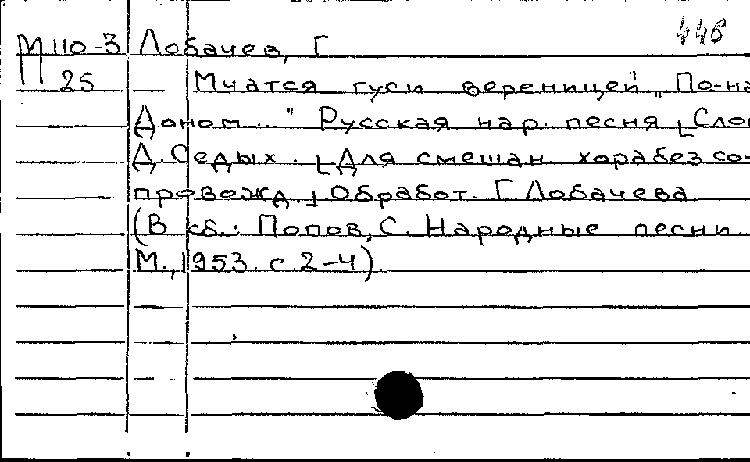 446
М 110-3 Лобачев, Г
П 25 Мчатся гуси вереницей „По-на
Доном..." Русская нар. песня [Сло
Д. Седых. [Для смешан. хора без со-
провожд.] Обработ. Г Лобачева
(В сб.: Попов, С. Народные песни
М., 1953. с 2-4)